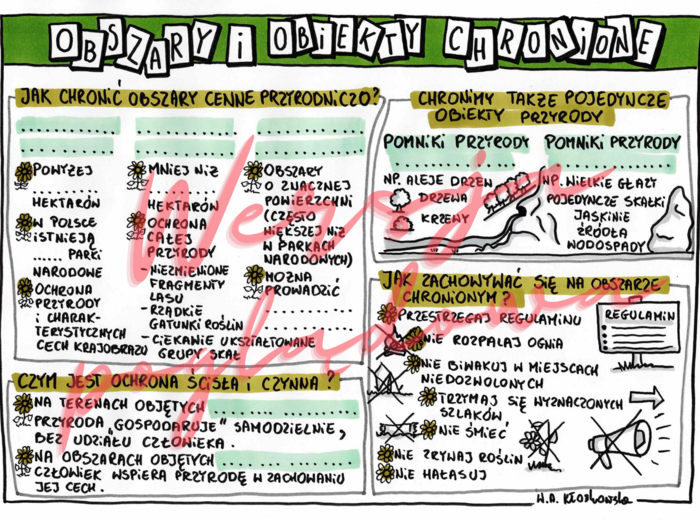 OBSZARY I OBIEKTY CHRONIONE
JAK CHRONIĆ OBSZARY CENNE PRZYRODNICZO?
POWYŻEJ
..........
HEKTARÓW
W POLSCE
ISTNIEJĄ
...... PARKI
NARODOWE
OCHRONA
PRZYRODY
I CHARAK-
TERYSTYCZNYCH
CECH KRAJOBRAZU
MNIEJ NIŻ
..........
HEKTARÓW
OCHRONA
CAŁEJ
PRZYRODY
- NIEZMIENIONE
FRAGMENTY
LASU
- RZADKIE
GATUNKI ROŚLIN
- CIEKAWIE UKSZTAŁTOWANE
GRUPY SKAŁ
OBSZARY
O ZNACZNEJ
POWIERZCHNI
(CZĘSTO
WIĘKSZEJ NIŻ
W PARKACH
NARODOWYCH)
MOŻNA
PROWADZIĆ
CHRONIMY TAKŻE POJEDYNCZE
OBIEKTY PRZYRODY
POMNIKI PRZYRODY
NP. ALEJE DRZEW
DRZEWA
KRZEWY
POMNIKI PRZYRODY
NP. WIELKIE GŁAZY
POJEDYNCZE SKAŁKI
JASKINIE
ŹRÓDŁA
WODOSPADY
CZYM JEST OCHRONA ŚCISŁA I CZYNNA?
NA TERENACH OBJĘTYCH ..........
PRZYRODA "GOSPODARUJE" SAMODZIELNIE,
BEZ UDZIAŁU CZŁOWIEKA.
NA OBSZARACH OBJĘTYCH ..........
CZŁOWIEK WSPIERA PRZYRODĘ W ZACHOWANIU
JEJ CECH.
JAK ZACHOWYWAĆ SIĘ NA OBSZARZE
CHRONIONYM?
PRZESTRZEGAJ REGULAMINU
REGULAMIN
NIE ROZPALAJ OGNIA
NIE BIWAKUJ W MIEJSCACH
NIEDOZWOLONYCH
TRZYMAJ SIĘ WYZNACZONYCH
SZLAKÓW
NIE ŚMIEĆ
NIE ZRYWAJ ROŚLIN
NIE HAŁASUJ
Wersja
poglądowa